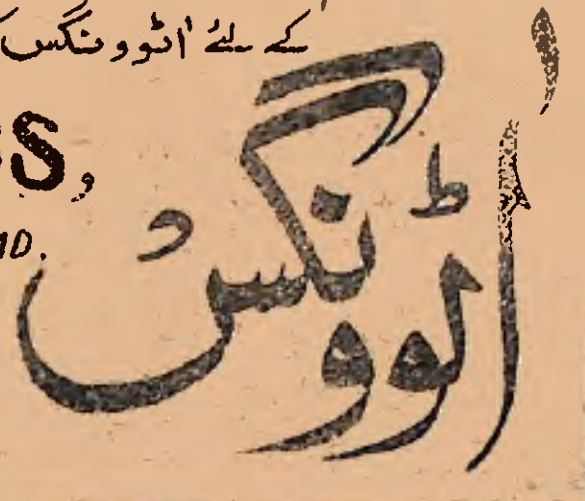 کے لئے اٹوونگس
S,
D.
اٹوونگس